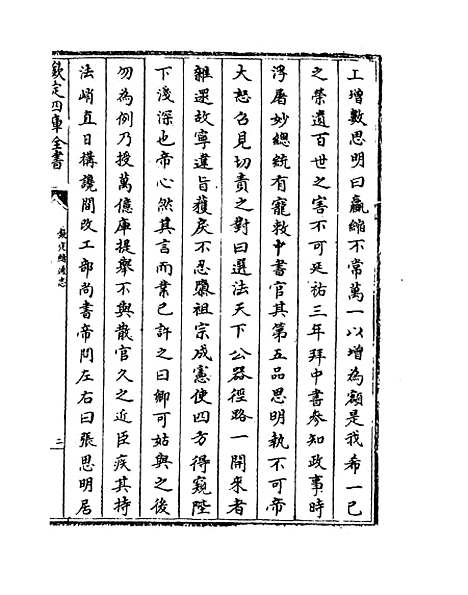 工增數思明曰贏縮不常萬一以增為額是我希一己
之榮遺百世之害不可延祐三年拜中書參知政事時
浮屠妙總統有寵敕中書官其第五品思明執不可帝
大怒召見切責之對曰選法天下公器徑路一開來者
雜遝故寧違旨獲戾不忍隳祖宗成憲使四方得窺陛
下淺深也帝心然其言而業已許之曰卿可姑與之後
勿為例乃授萬億庫提舉不與散官久之近臣疾其持
法峭直日搆讒間改工部尚書帝問左右曰張思明居
欽定四庫全書
二